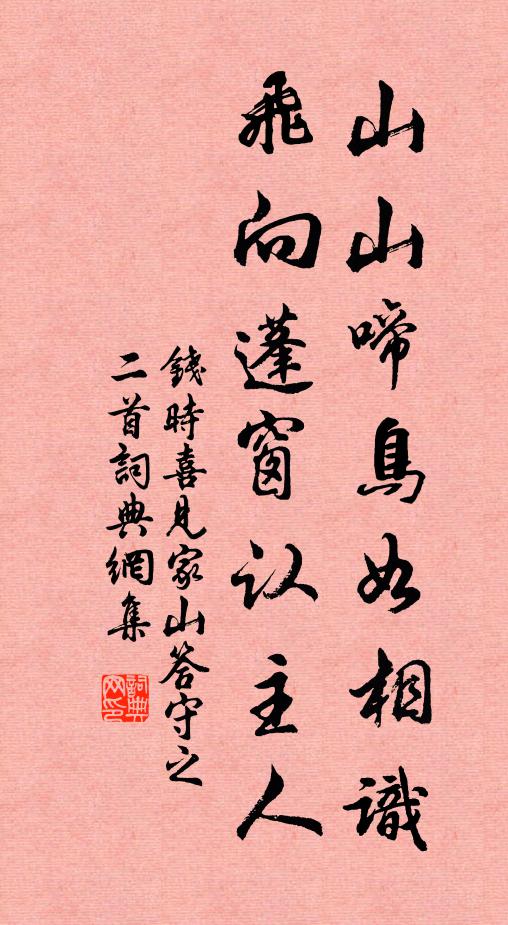 山山啼鳥如相識
飛向蓬窗认主人
錢時喜見家山答守之
二首詞典網集
詞典
网印